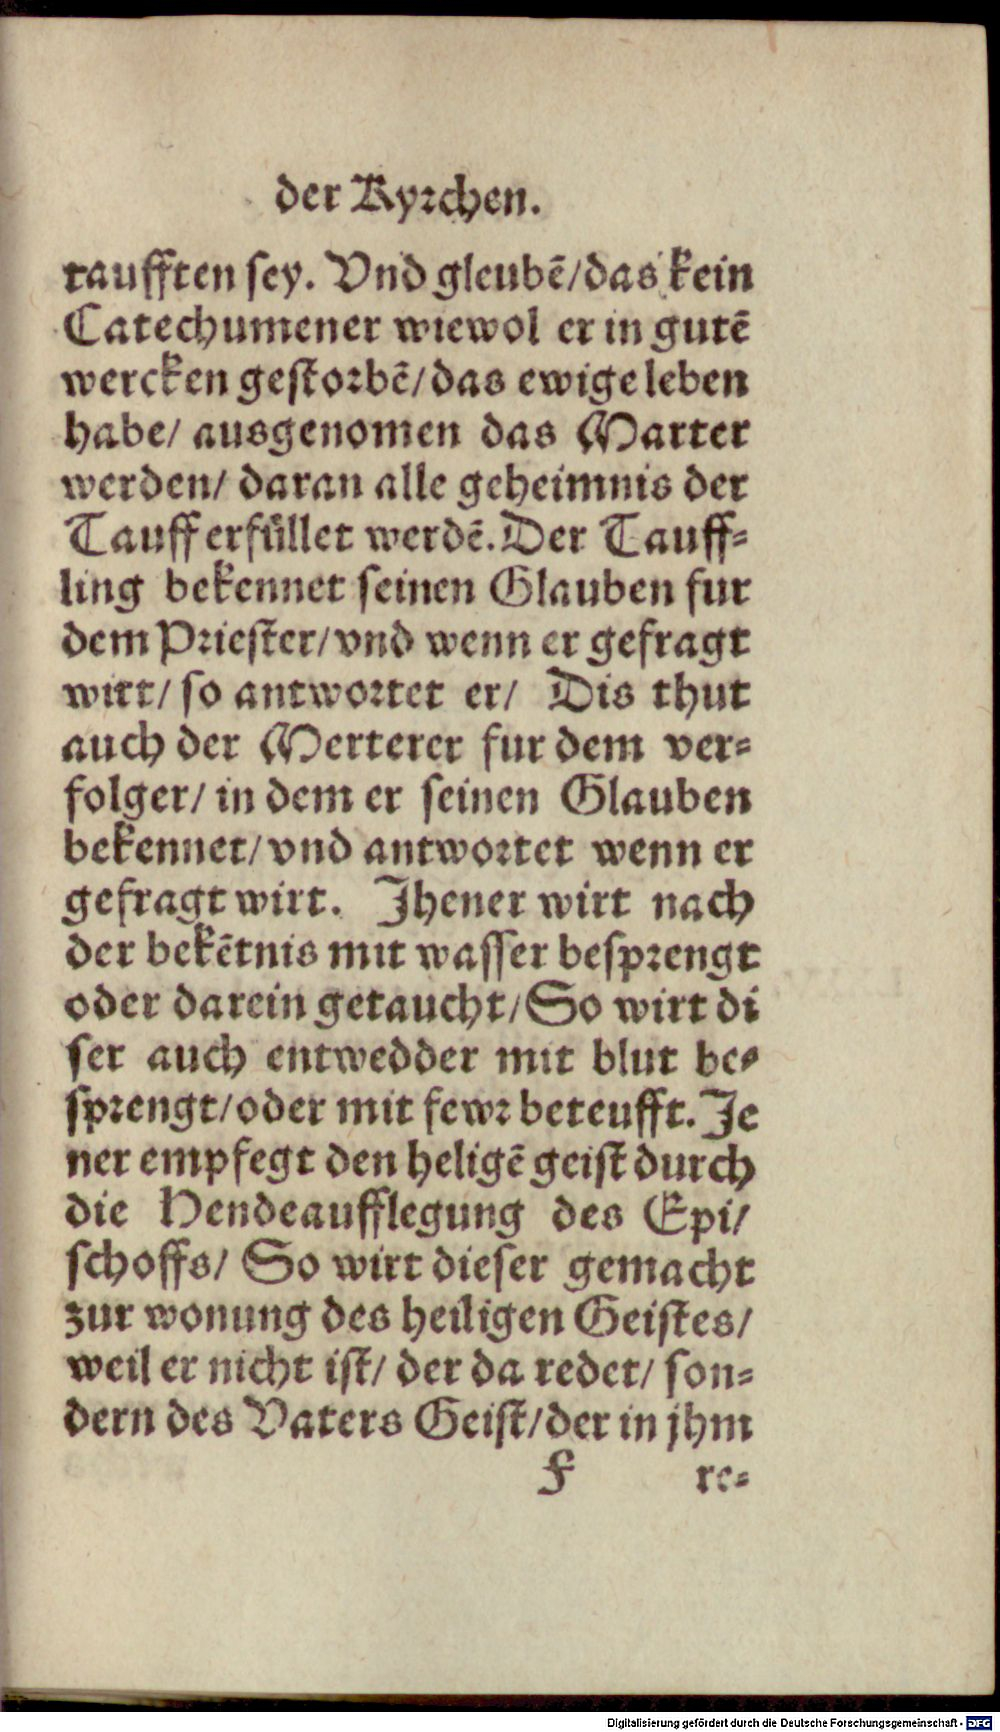 der Kyrchen.
taufften sey. Vnd gleubẽ/das kein
Catechumener wiewol er in gutẽ
wercken gestorbẽ/das ewige leben
habe/ ausgenomen das Marter
werden/ daran alle geheimnis der
Tauff erfüllet werdẽ. Der Tauff-
ling bekennet seinen Glauben fur
dem Priester/vnd wenn er gefragt
wirt/ so antwortet er/ Dis thut
auch der Merterer fur dem ver-
folger/ in dem er seinen Glauben
bekennet/vnd antwortet wenn er
gefragt wirt. Jhener wirt nach
der bekẽtnis mit wasser besprengt
oder darein getaucht/So wirt di
ser auch entwedder mit blut be-
sprengt/oder mit fewr beteufft. Je
ner empfegt den heligẽ geist durch
die Hendeaufflegung des Epi/
schoffs/ So wirt dieser gemacht
zur wonung des heiligen Geistes/
weil er nicht ist/ der da redet/ son-
dern des Vaters Geist/der in jhm
F re-
Digitalisierung gefördert durch die Deutsche Forschungsgemeinschaft - DFG